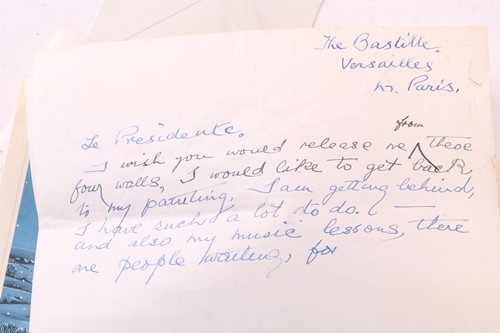 The Bastille.
Versailles
nr. Paris.
Le Presidente.
I wish you would release me from these
four walls, I would like to get back
to my painting. I am getting behind,
I have such a lot to do. —
and also my music lessons, there
are people waiting, for